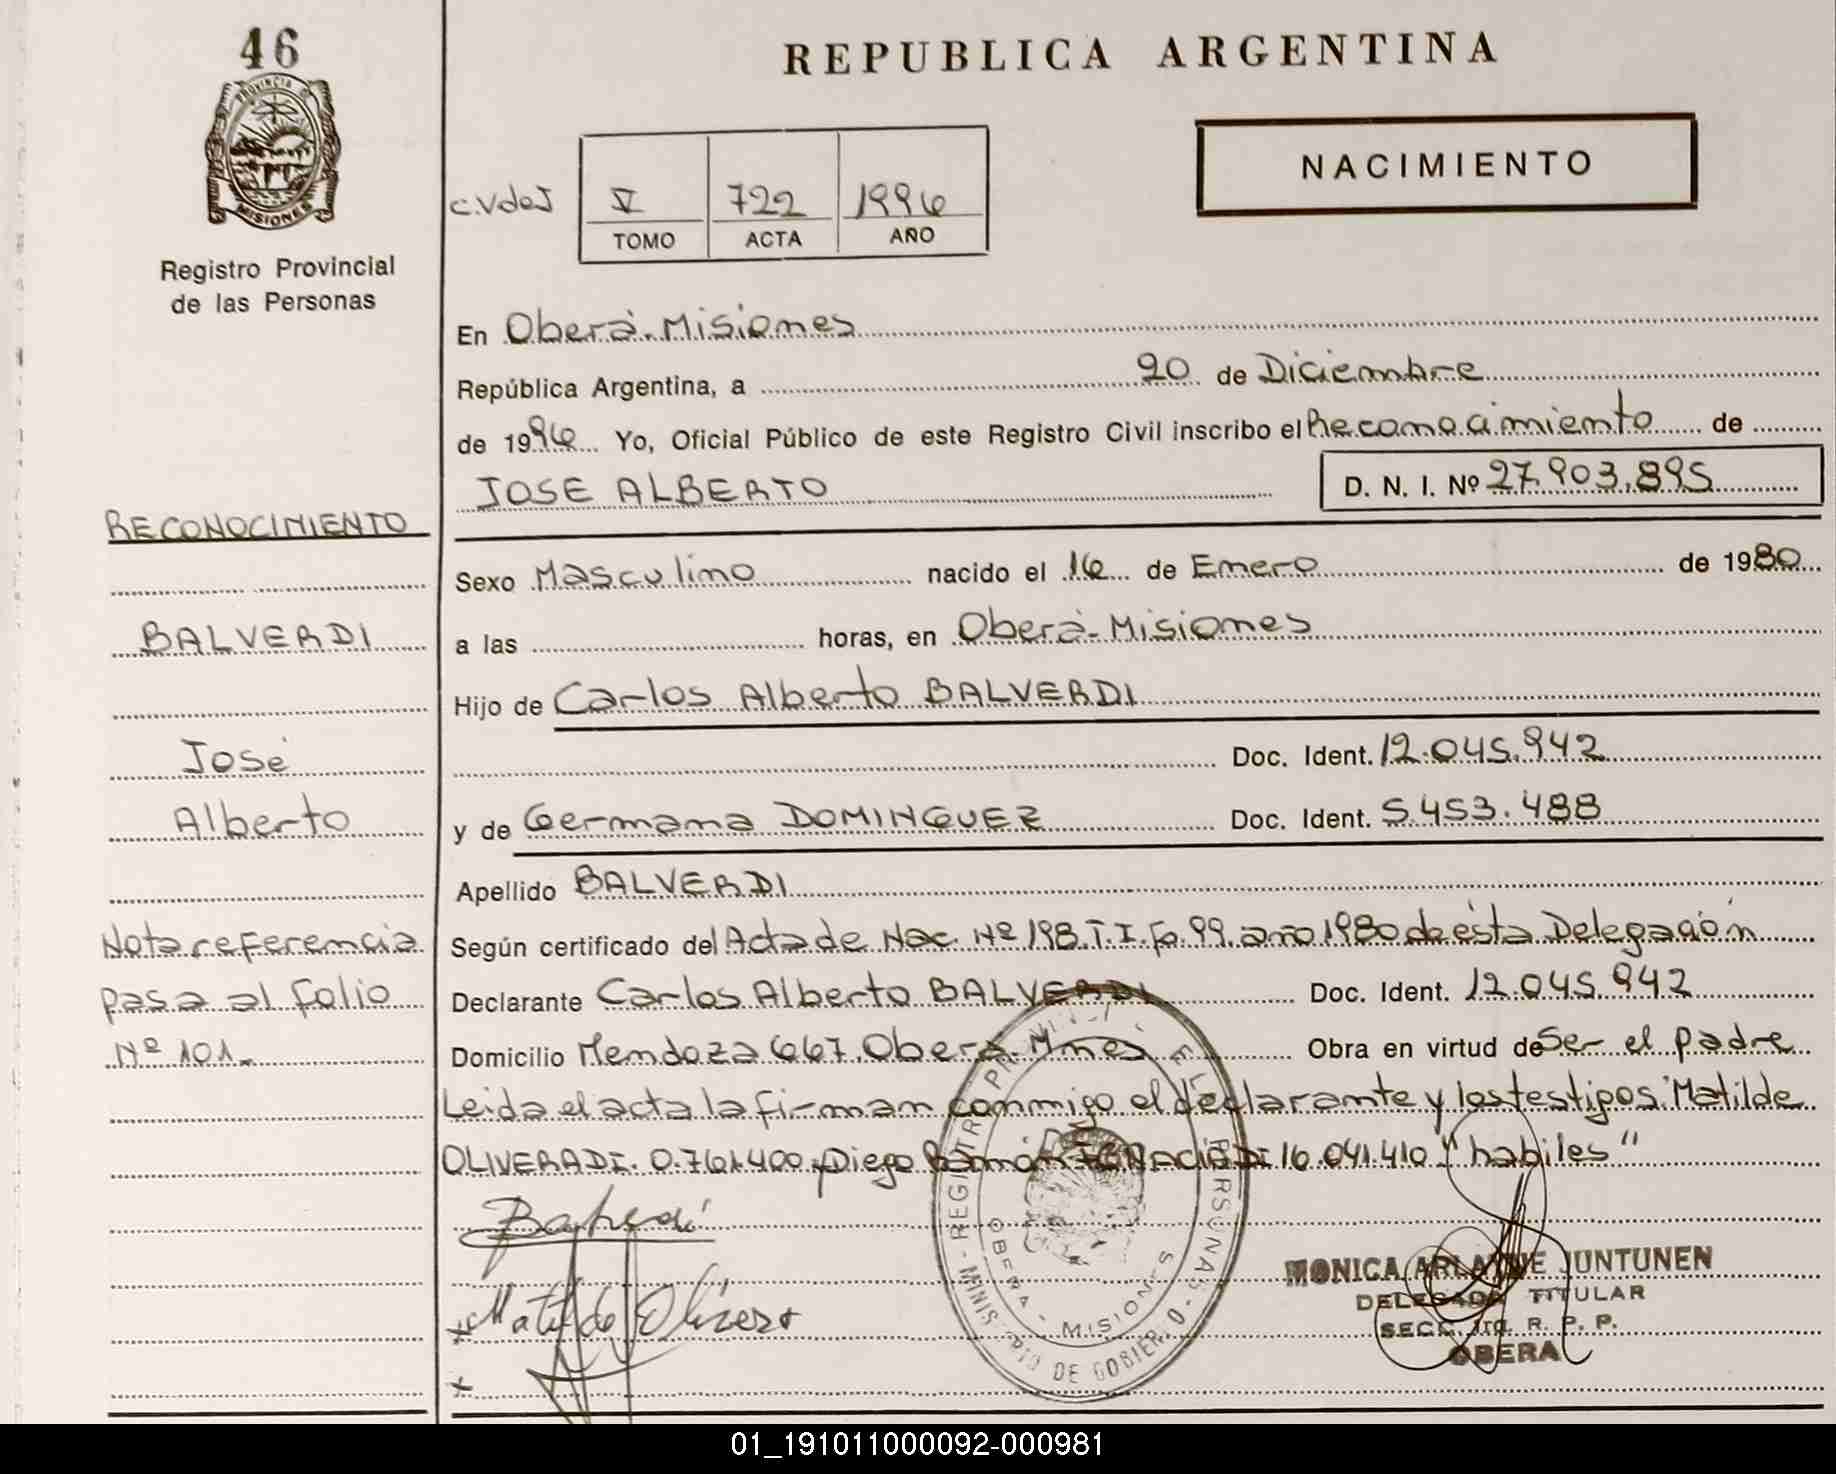 46
PROVINCIA D
MISIONES
Registro Provincial
de las Personas
REPUBLICA ARGENTINA
NACIMIENTO
C.VdeJ V 722 1996
TOMO ACTA AÑO
En Oberá-Misiones
República Argentina, a 20 de Diciembre
de 1996 Yo, Oficial Público de este Registro Civil inscribo el Reconocimiento de
JOSE ALBERTO D. N. I. Nº 27.903.895
RECONOCIMIENTO
Sexo Masculino nacido el 16 de Enero de 1980
BALVERDI
a las horas, en Oberá-Misiones
Hijo de Carlos Alberto BALVERDI
José
Doc. Ident. 12.045.942
Alberto
y de Germana DOMINGUEZ Doc. Ident. 5.453.488
Apellido BALVERDI
Nota referencia
pasa al folio
Nº 101.
Según certificado del Acta de Nac. Nº 198.T.I.Fo.99.año 1980 de ésta Delegación
Declarante Carlos Alberto BALVERDI Doc. Ident. 12.045.942
Domicilio Mendoza 667.Oberá.Mnes Obra en virtud de Ser el padre
Leida el acta la firman conmigo el declarante y los testigos: Matilde
OLIVERA DI. 0.761.400 y Diego Ramón DI 16.041.410 "habiles"
Matilde Olivera
OBERA - MISIONES
MONICA JUNTUNEN
DELEGADA TITULAR
SECC. R. P. P.
OBERA
01_191011000092-000981